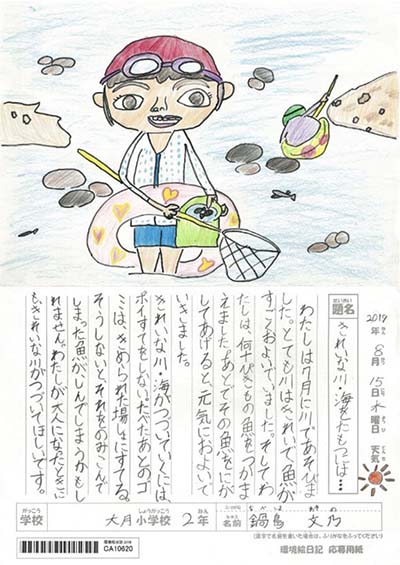 2019年8月15日木曜日 天気
題名 きれいな川・海をたもつには…
わたしは7月に川であそびま
した。とても川はきれいで、魚が
すごくおよいでいました。そしてわ
たしは、何十ぴきもの魚をつかま
えました。あとでその魚をにが
してあげると、元気におよいで
いきました。
きれいな川・海がつづいていくには、
ポイすてをしない、たべたあとのゴ
ミは、きめられた場しょにすてる。
そうしないと、それをのみこんで
しまった魚がしんでしまうかもし
れません。わたしが大人になったときに
もきれいな川がつづいてほしいです。
学校 大月小学校 2年 名前 鍋島 文乃
(漢字で名前を書いた場合は、ふりがなをふってください)
CA10620
環境絵日記 応募用紙